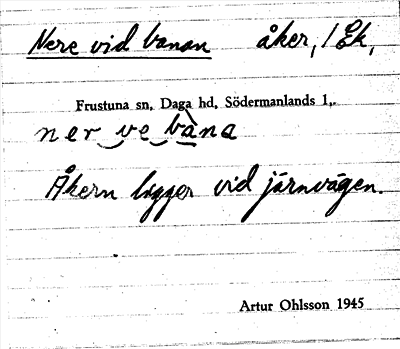 Nere vid banan åker, 1 Ek,
Frustuna sn, Daga hd, Södermanlands l,.
ner ve bàna
Åkern ligger vid järnvägen.
Artur Ohlsson 1945